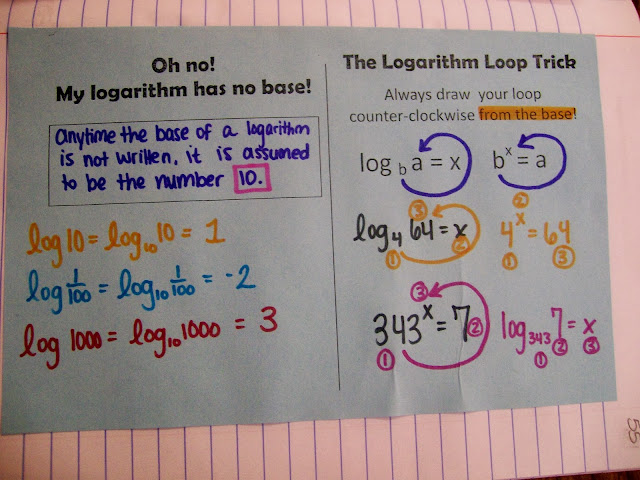 Oh no!
My logarithm has no base!
anytime the base of a logarithm
is not written, it is assumed
to be the number 10.
log 10 = log₁₀ 10 = 1
log 1/100 = log₁₀ 1/100 = -2
log 1000 = log₁₀ 1000 = 3
The Logarithm Loop Trick
Always draw your loop
counter-clockwise from the base!
log b a = x    bˣ = a
③ ②
log₄ 64 = x    4ˣ = 64
① ② ① ③
③
343ˣ = 7 ②    log₃₄₃ 7 = x
① ① ② ③
55